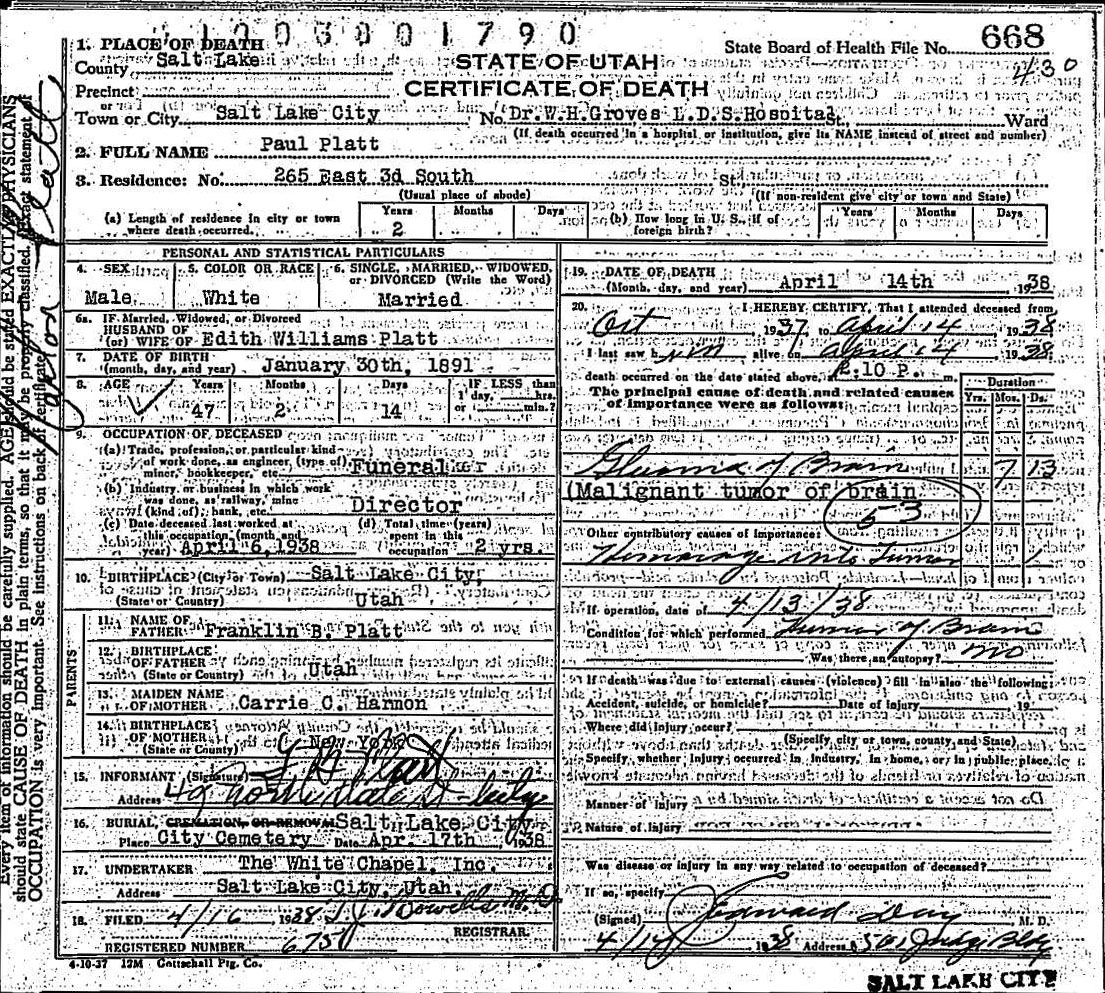 1003001790
State Board of Health File No. 668
430
1. PLACE OF DEATH
County Salt Lake
STATE OF UTAH
CERTIFICATE OF DEATH
Precinct
or
Town or City Salt Lake City No. Dr. W.H. Groves L.D.S. Hospital St., Ward
(If death occurred in a hospital or institution, give its NAME instead of street and number)
2. FULL NAME Paul Platt
3. Residence: No. 265 East 3d South St.
(Usual place of abode) (If non-resident give city or town and State)
(a) Length of residence in city or town where death occurred. Years 2 Months Days
(b) How long in U. S., if of foreign birth? Years Months Days
PERSONAL AND STATISTICAL PARTICULARS
4. SEX Male
5. COLOR OR RACE White
6. SINGLE, MARRIED, WIDOWED, or DIVORCED (Write the Word) Married
6a. IF Married, Widowed, or Divorced
HUSBAND OF
(or) WIFE OF Edith Williams Platt
7. DATE OF BIRTH
(month, day, and year) January 30th, 1891
8. AGE Years 47 Months 2 Days 14 IF LESS than 1 day, hrs. or min.?
9. OCCUPATION OF DECEASED
(a) Trade, profession, or particular kind
of work done, as engineer, (type of)
miner, bookkeeper, etc. Funeral
(b) Industry or business in which work
was done, as railway, mine
(kind of), bank, etc. Director
(c) Date deceased last worked at
this occupation (month and
year) April 6, 1938
(d) Total time (years)
spent in this
occupation 2 yrs.
10. BIRTHPLACE (City or Town) Salt Lake City,
(State or Country) Utah
PARENTS
11. NAME OF
FATHER Franklin B. Platt
12. BIRTHPLACE
OF FATHER
(State or Country) Utah
13. MAIDEN NAME
OF MOTHER Carrie C. Harmon
14. BIRTHPLACE
OF MOTHER
(State or County) New York
15. INFORMANT (Signature) Platt
Address
16. BURIAL, CREMATION, OR REMOVAL Salt Lake City
Place City Cemetery Date Apr. 17th 1938
17. UNDERTAKER The White Chapel, Inc.
Address Salt Lake City, Utah.
18. FILED 4/16 1938 M.D.
REGISTRAR.
REGISTERED NUMBER 675
4-10-37 12M Gottschall Ptg. Co.
19. DATE OF DEATH
(Month, day, and year) April 14th 1938
20. I HEREBY CERTIFY, That I attended deceased from
Oct 1937 to April 14 1938
I last saw him alive on April 14 1938
death occurred on the date stated above, at 2:10 P. m.
The principal cause of death and related causes
of importance were as follows:
Duration
Yrs. Mos. Ds.
Glioma of Brain 7 13
(Malignant tumor of brain
53
Other contributory causes of importance:
Hemorrage into Tumor 1
If operation, date of 4/13/38
Condition for which performed Tumor of Brain
Was there an autopsy? no
If death was due to external causes (violence) fill in also the following:
Accident, suicide, or homicide? Date of injury 19
Where did injury occur?
(Specify city or town, county, and State)
Specify whether injury occurred in industry, in home, or in public place.
Manner of injury
Nature of injury
Was disease or injury in any way related to occupation of deceased?
If so, specify
(Signed) Edward Day M. D.
4/14 1938 Address 501 Judge Bldg
SALT LAKE CITY
Every item of information should be carefully supplied. AGE should be stated EXACTLY. PHYSICIANS
should state CAUSE OF DEATH in plain terms, so that it may be properly classified. Exact statement of
OCCUPATION is very important. See instructions on back of certificate.